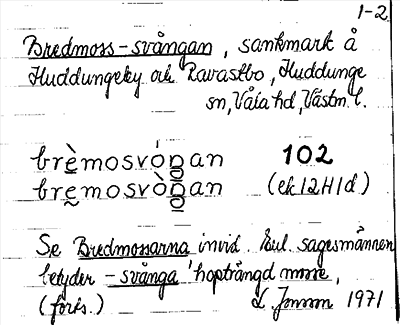 1-2
Bredmoss-svångan, sankmark å
Huddungeby och Ravastbo, Huddunge
sn, Våla hd, Västm. l.
brèmosvóŋan 102
brèmosvòŋan (ek 12H1d)
Se Bredmossarna invid. Enl. sagesmännen
betyder -svånga 'hopträngd mosse,
(forts.) 1971